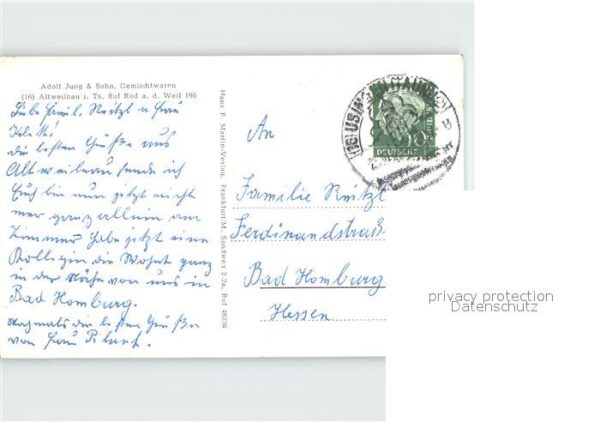 Adolf Jung & Sohn, Gemischtwaren
(16) Altweilnau i. Ts. Ruf Rod a. d. Weil 196
Liebe Famil. Reitzl u Frau
die besten Grüße aus
Altweilnau sende ich
Euch bin nun jetzt nicht
mer ganz allein am
Zimmer habe jetzt eine
Kollegin die Wohnt ganz
in der Nähe von uns in
Bad Homburg.
Nochmals die besten Grüße
von Frau
Hans F. Martin-Verlag, Frankfurt/M., Sandweg 2-2a, Ruf 48236
An
Familie Reitzl
Ferdinandstraß
Bad Homburg
Hessen
10
DEUTSCHE
privacy protection
Datenschutz